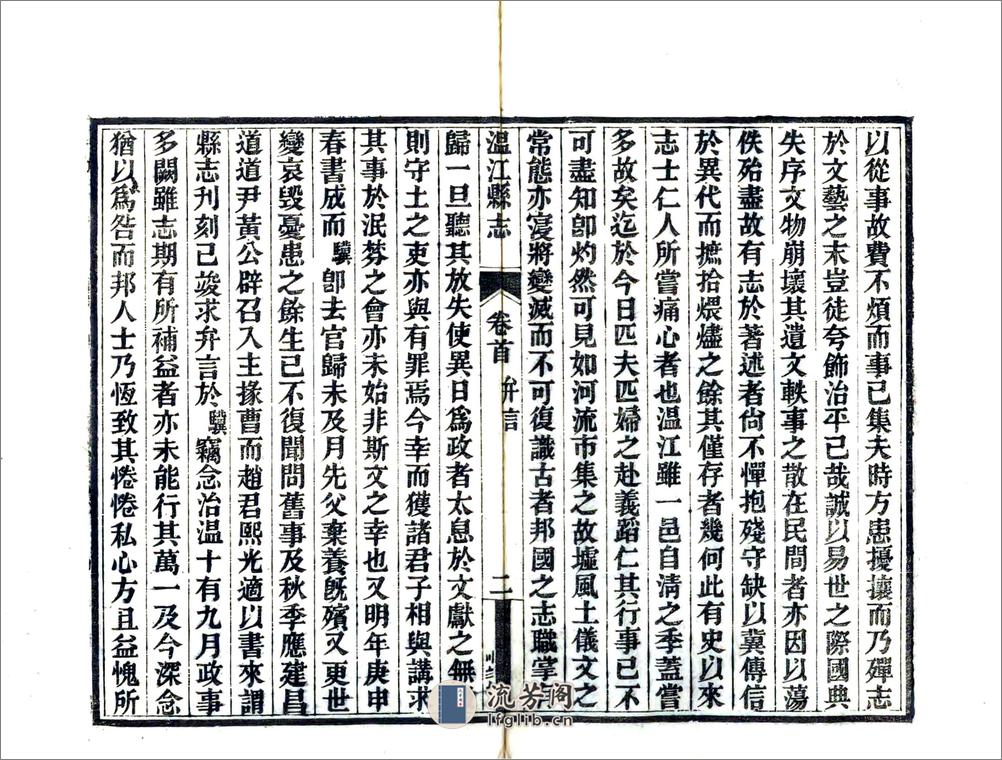 以從事故費不煩而事已集夫時方患擾攘而乃殫志
於文藝之末豈徒夸飾治平已哉誠以易世之際國典
失序文物崩壞其遺文軼事之散在民間者亦因以蕩
佚殆盡故有志於著述者尙不憚抱殘守缺以冀傳信
於異代而摭拾煨燼之餘其僅存者幾何此有史以來
志士仁人所嘗痛心者也溫江雖一邑自淸之季蓋嘗
多故矣迄於今日匹夫匹婦之赴義蹈仁其行事已不
可盡知卽灼然可見如河流市集之故墟風土儀文之
常態亦寖將變滅而不可復識古者邦國之志職掌
溫江縣志 卷首 弁言 二
歸一旦聽其放失使異日爲政者太息於文獻之無
則守土之吏亦與有罪焉今幸而獲諸君子相與講求
其事於泯棼之會亦未始非斯文之幸也又明年庚申
春書成而驥卽去官歸未及月先父棄養旣殯又更世
變哀毀憂患之餘生已不復聞問舊事及秋季應建昌
道道尹黃公辟召入主掾曹而趙君熙光適以書來謂
縣志刊刻已竣求弁言於驥竊念治溫十有九月政事
多闕雖志期有所補益者亦未能行其萬一及今深念
猶以爲咎而邦人士乃恆致其惓惓私心方且益愧所
流芳閣
lfglib.cn